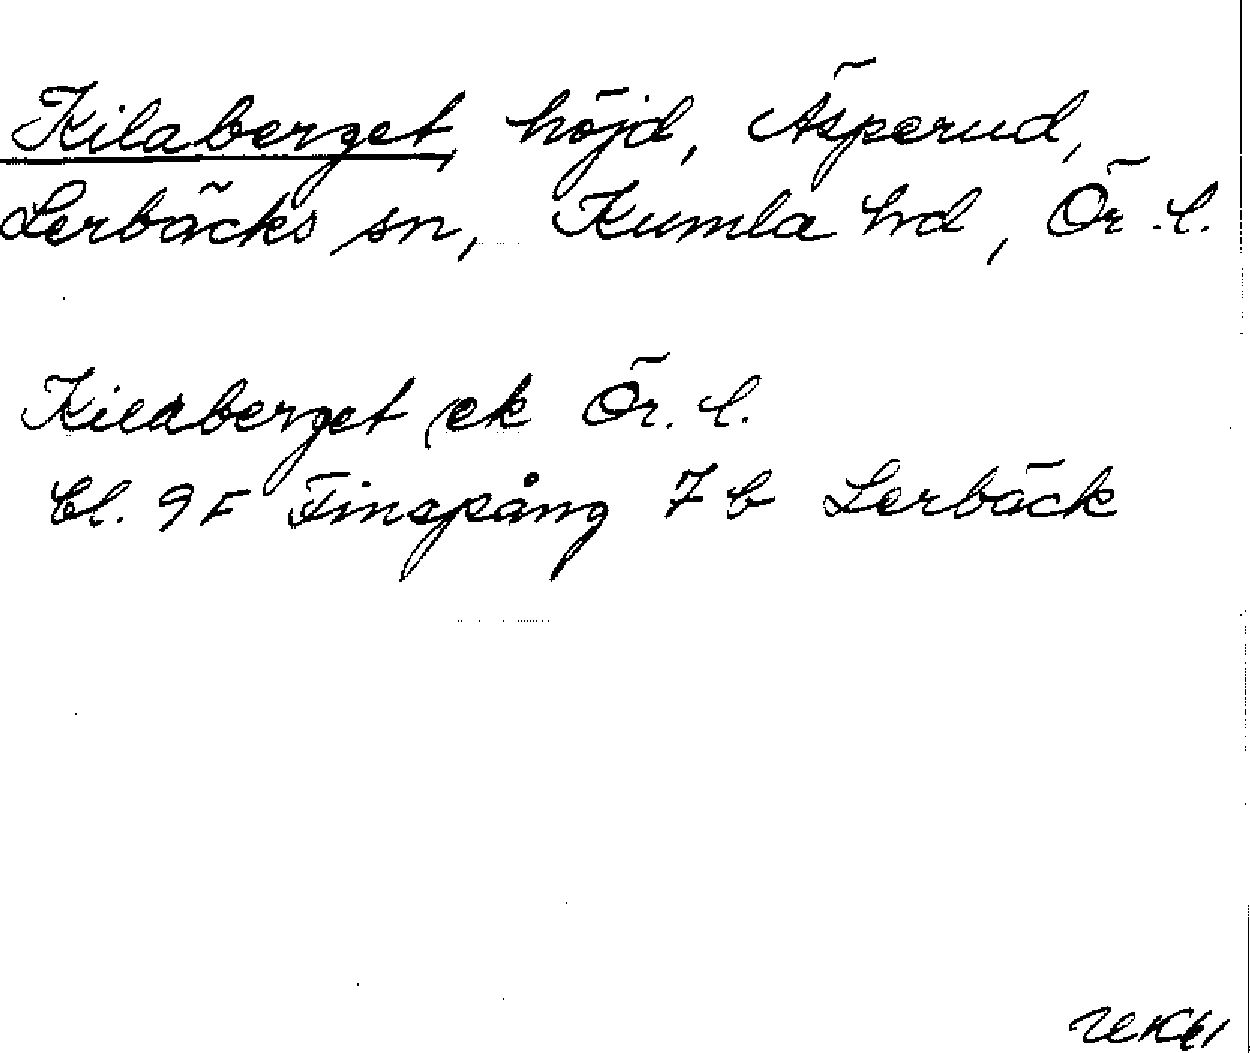 Kilaberget, höjd, Äsperud,
Lerbäcks sn, Kumla hd, Ör. l.
Kilaberget ek Ör. l.
bl. 9F Finspång 7 b Lerbäck